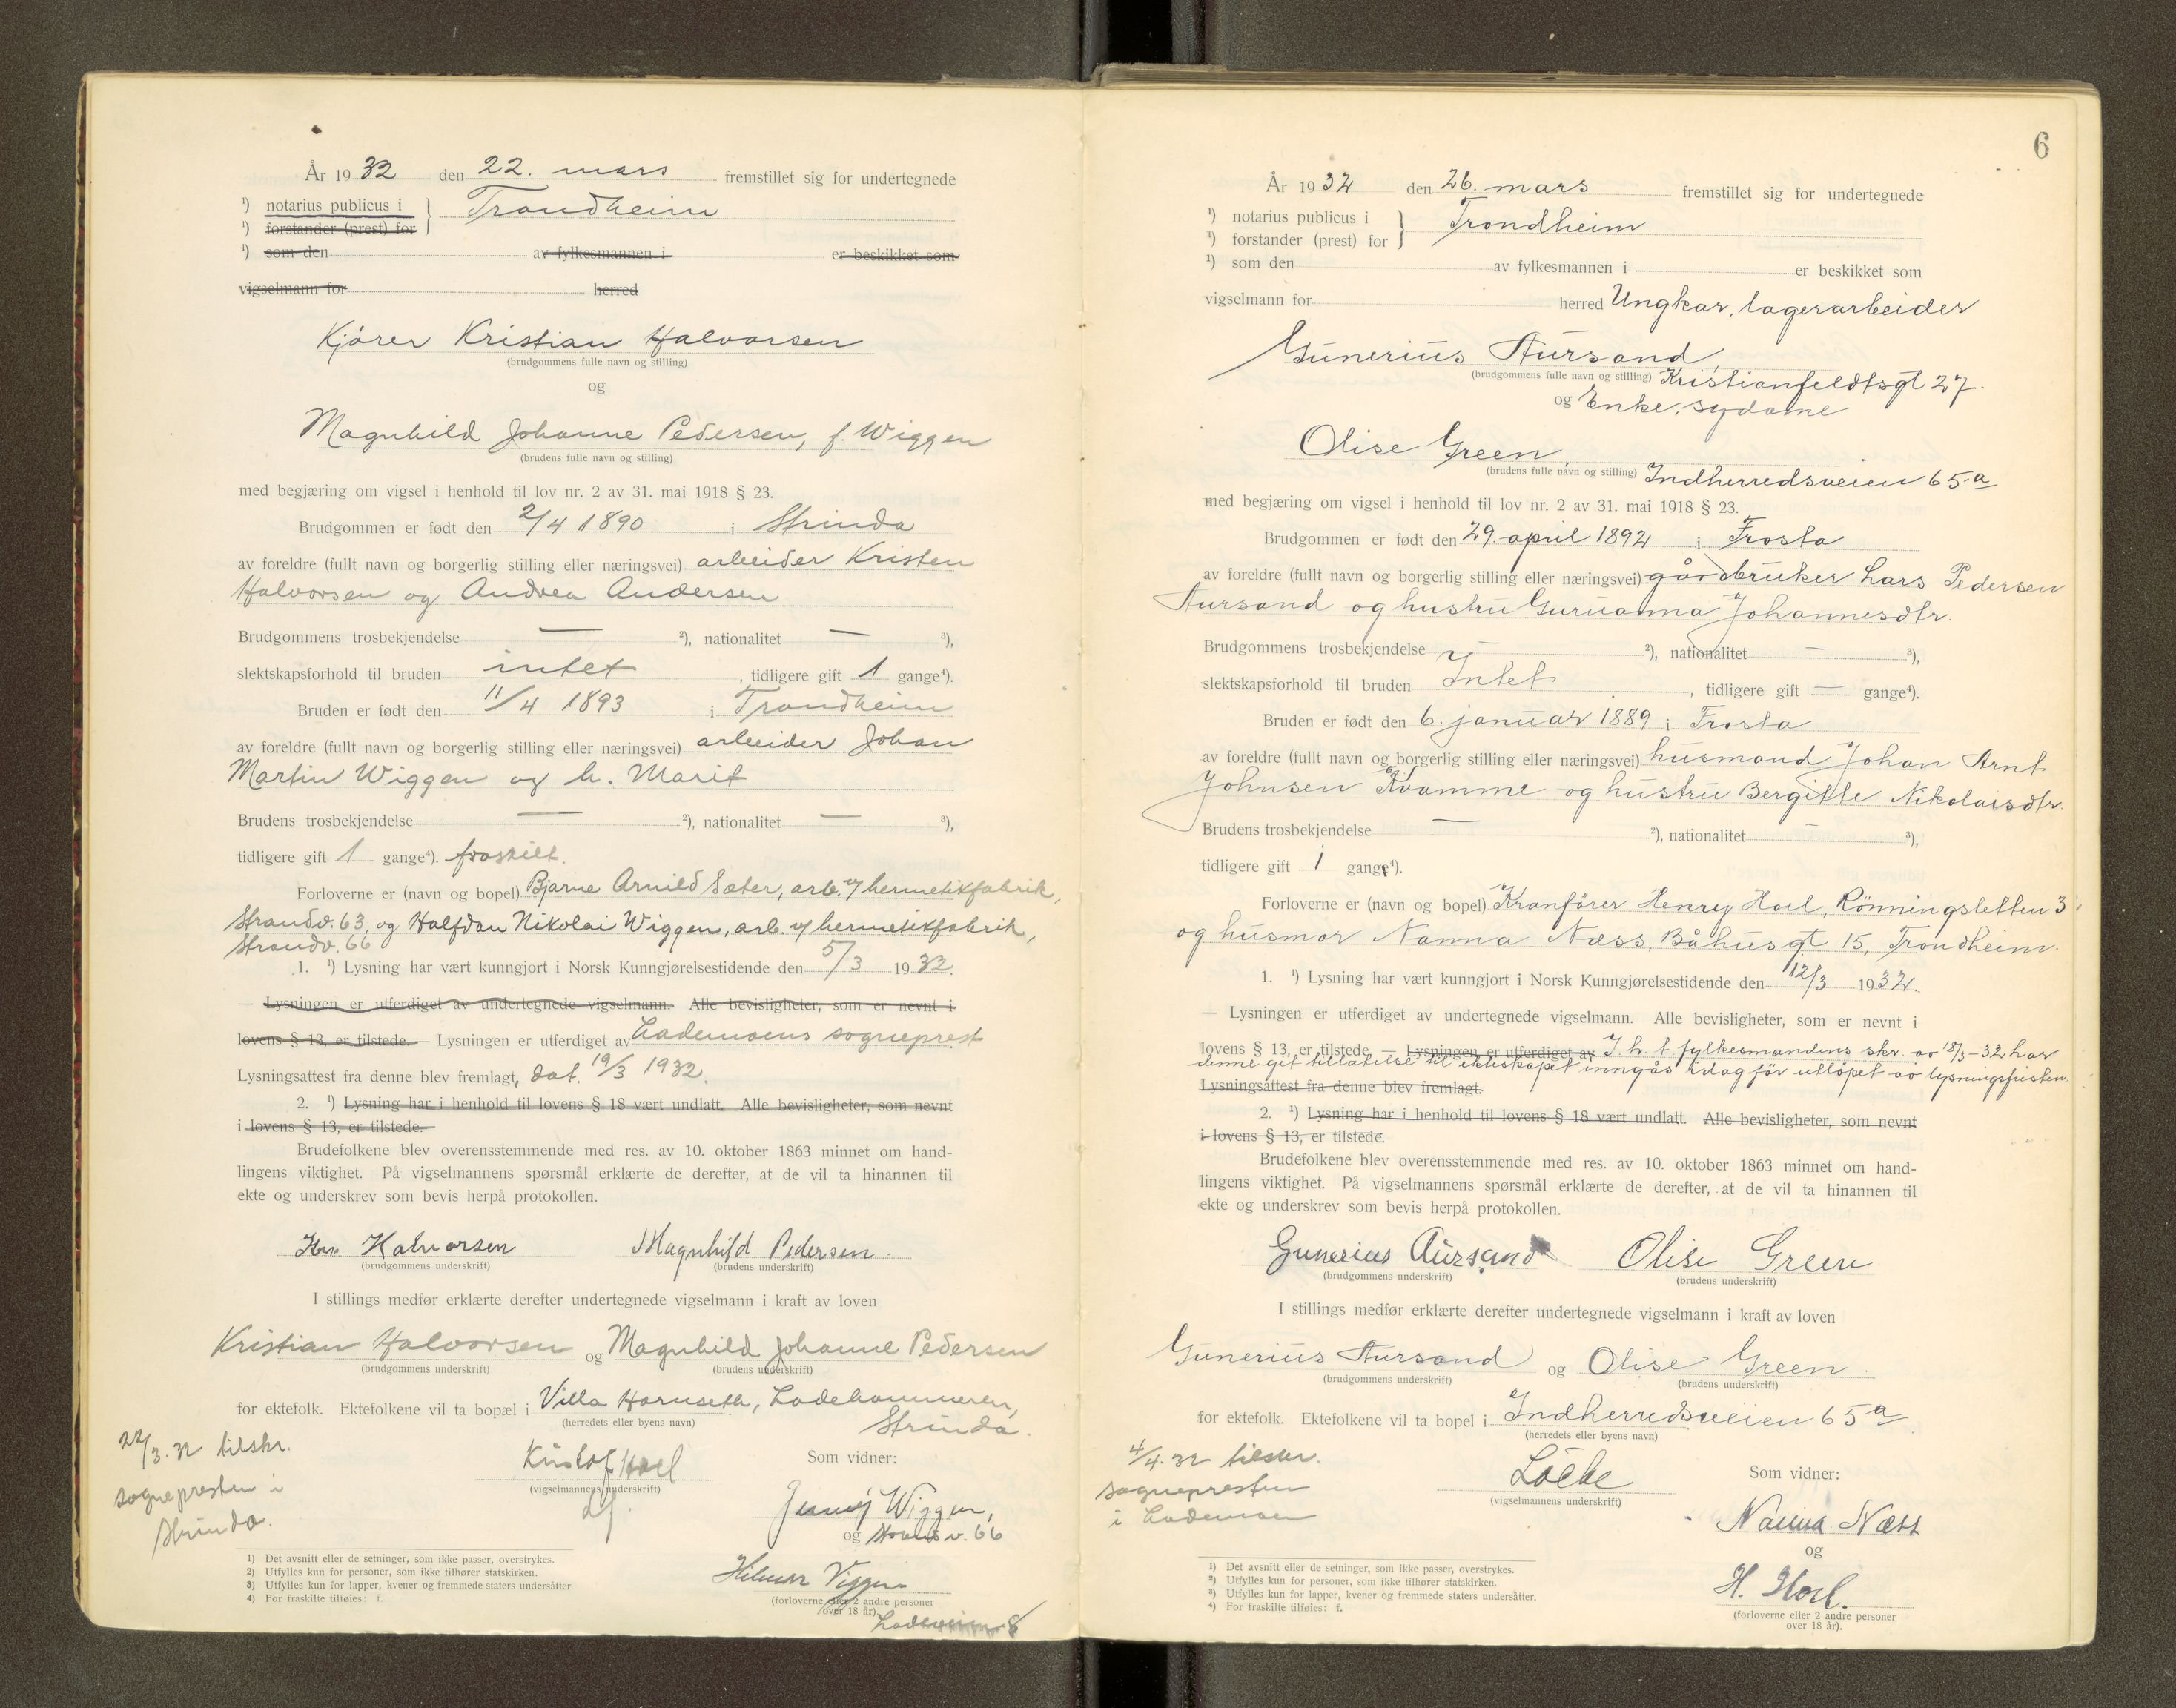 År 1932 den 22. mars fremstillet sig for undertegnede
¹) notarius publicus i } Trondheim
¹) forstander (prest) for
¹) som den av fylkesmannen i er beskikket som
vigselmann for herred
Kjører Kristian Halvorsen
(brudgommens fulle navn og stilling)
og
Magnhild Johanne Pedersen, f. Wiggen
(brudens fulle navn og stilling)
med begjæring om vigsel i henhold til lov nr. 2 av 31. mai 1918 § 23.
Brudgommen er født den 2/4 1890 i Strinda
av foreldre (fullt navn og borgerlig stilling eller næringsvei) arbeider Kristen
Halvorsen og Andrea Andersen
Brudgommens trosbekjendelse — ²), nationalitet — ³),
slektskapsforhold til bruden intet, tidligere gift 1 gange⁴).
Bruden er født den 11/4 1893 i Trondheim
av foreldre (fullt navn og borgerlig stilling eller næringsvei) arbeider Johan
Martin Wiggen og h. Marit
Brudens trosbekjendelse — ²), nationalitet — ³),
tidligere gift 1 gange⁴). fraskilt.
Forloverne er (navn og bopel) Bjarne Arnild Sæter, arb. v/ hermetikfabrik,
Strandv. 63, og Halfdan Nikolai Wiggen, arb. v/ hermetikfabrik,
Strandv. 66
1. ¹) Lysning har vært kunngjort i Norsk Kunngjørelsestidende den 5/3 1932.
— Lysningen er utferdiget av undertegnede vigselmann. Alle bevisligheter, som er nevnt i
lovens § 13, er tilstede. — Lysningen er utferdiget av Lademoens sogneprest
Lysningsattest fra denne blev fremlagt, dat. 19/3 1932.
2. ¹) Lysning har i henhold til lovens § 18 vært undlatt. Alle bevisligheter, som nevnt
i lovens § 13, er tilstede.
Brudefolkene blev overensstemmende med res. av 10. oktober 1863 minnet om hand-
lingens viktighet. På vigselmannens spørsmål erklærte de derefter, at de vil ta hinannen til
ekte og underskrev som bevis herpå protokollen.
Halvorsen Magnhild Pedersen.
(brudgommens underskrift) (brudens underskrift)
I stillings medfør erklærte derefter undertegnede vigselmann i kraft av loven
Kristian Halvorsen og Magnhild Johanne Pedersen
(brudgommens underskrift) (brudens underskrift)
for ektefolk. Ektefolkene vil ta bopæl i Villa Hornseth, Ladehammeren,
(herredets eller byens navn) Strinda.
22/3.32 tilskr.
sognepresten i
Strinda.
Som vidner:
(vigselmannens underskrift)
Wiggen,
og Strandv. 66
Hilmar Viggen
(forloverne eller 2 andre personer
over 18 år).
Ladeveien 8
1) Det avsnitt eller de setninger, som ikke passer, overstrykes.
2) Utfylles kun for personer, som ikke tilhører statskirken.
3) Utfylles kun for lapper, kvener og fremmede staters undersåtter
4) For fraskilte tilføies: f.
6
År 1932 den 26. mars fremstillet sig for undertegnede
¹) notarius publicus i } Trondheim
¹) forstander (prest) for
¹) som den av fylkesmannen i er beskikket som
vigselmann for herred Ungkar, lagerarbeider
Gunerius Aursand,
(brudgommens fulle navn og stilling) Kristianfeldtsgt 27.
og Enke, sydame
Olise Green,
(brudens fulle navn og stilling) Indherredsveien 65a
med begjæring om vigsel i henhold til lov nr. 2 av 31. mai 1918 § 23.
Brudgommen er født den 29. april 1892 i Frosta
av foreldre (fullt navn og borgerlig stilling eller næringsvei) gårdbruker Lars Pedersen
Aursand og hustru Guruanna Johannesdtr.
Brudgommens trosbekjendelse — ²), nationalitet — ³),
slektskapsforhold til bruden Intet, tidligere gift — gange⁴).
Bruden er født den 6. januar 1889 i Frosta
av foreldre (fullt navn og borgerlig stilling eller næringsvei) husmand Johan Arnt
Johnsen Kvamme og hustru Bergitte Nikolaisdtr.
Brudens trosbekjendelse — ²), nationalitet — ³),
tidligere gift 1 gange⁴).
Forloverne er (navn og bopel) Kranfører Henry Hoel, Rönningsletten 3
og husmor Nanna Næss, Båhusgt 15, Trondheim.
1. ¹) Lysning har vært kunngjort i Norsk Kunngjørelsestidende den 12/3 1932.
— Lysningen er utferdiget av undertegnede vigselmann. Alle bevisligheter, som er nevnt i
lovens § 13, er tilstede. — Lysningen er utferdiget av I. h. t. fylkesmandens skr. av 18/3-32 har
denne git tillatelse til ekteskapet inngås idag før utløpet av lysningsfristen.
Lysningsattest fra denne blev fremlagt.
2. ¹) Lysning har i henhold til lovens § 18 vært undlatt. Alle bevisligheter, som nevnt
i lovens § 13, er tilstede.
Brudefolkene blev overensstemmende med res. av 10. oktober 1863 minnet om hand-
lingens viktighet. På vigselmannens spørsmål erklærte de derefter, at de vil ta hinannen til
ekte og underskrev som bevis herpå protokollen.
Gunerius Aursand Olise Green
(brudgommens underskrift) (brudens underskrift)
I stillings medfør erklærte derefter undertegnede vigselmann i kraft av loven
Gunerius Aursand og Olise Green.
(brudgommens underskrift) (brudens underskrift)
for ektefolk. Ektefolkene vil ta bopel i Indherredsveien 65a
(herredets eller byens navn)
4/4.32 tilskr.
sognepresten
i Lademoen
Som vidner:
(vigselmannens underskrift)
Nanna Næss
og
H. Hoel.
(forloverne eller 2 andre personer
over 18 år).
¹) Det avsnitt eller de setninger, som ikke passer, overstrykes.
²) Utfylles kun for personer, som ikke tilhører statskirken.
³) Utfylles kun for lapper, kvener og fremmede staters undersåtter.
⁴) For fraskilte tilføies: f.